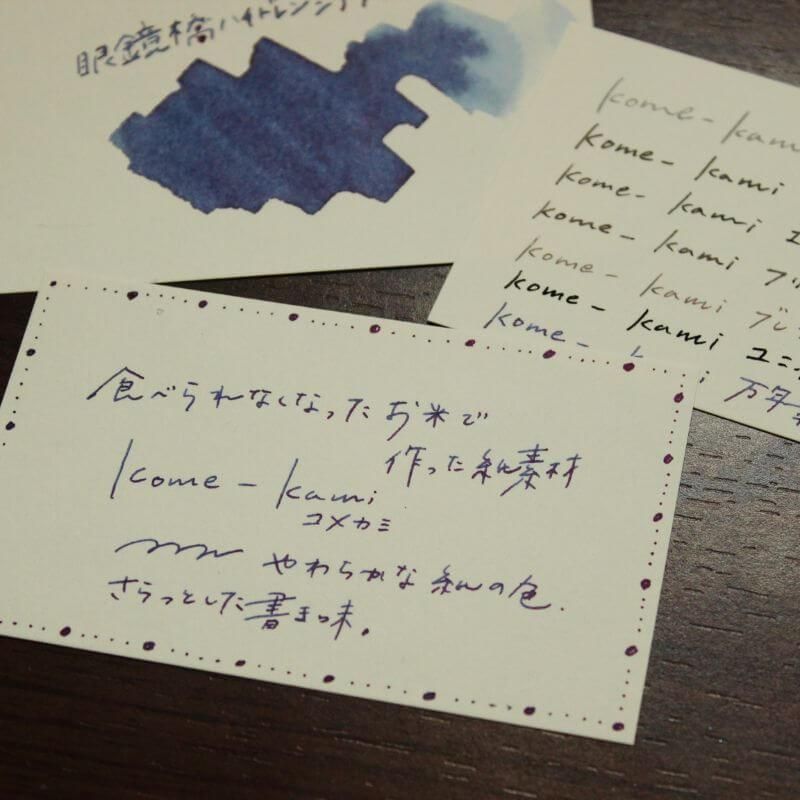 眼鏡橋ハイドレンジア
kome-kami
kome-kami
kome-kami エ
kome-kami フ
kome-kami プレ
kome-kami ユニ
kome- 万年
食べられなくなったお米で
作った紙素材
kome-kami
コメカミ
やわらかな紙の色.
さらっとした書き味.